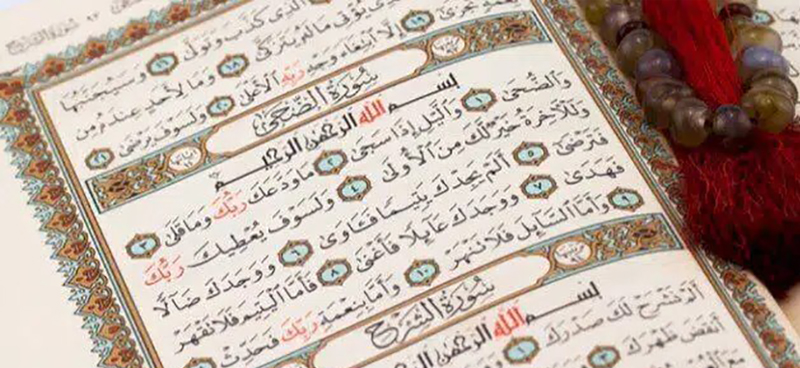 الَّذِى كَذَّبَ وَتَوَلَّىٰ ١٦ وَسَيُجَنَّبُهَا
يَتَزَكَّىٰ ١٨ وَمَا لِأَحَدٍ عِندَهُ مِن
تُجْزَىٰ ١٩ إِلَّا ٱبْتِغَآءَ وَجْهِ رَبِّهِ ٱلْأَعْلَىٰ ٢٠ وَلَسَوْفَ يَرْضَىٰ ٢١
سُورَةُ الضُّحَىٰ
بِسْمِ اللَّهِ الرَّحْمَٰنِ الرَّحِيمِ
وَٱلضُّحَىٰ ١ وَٱلَّيْلِ إِذَا سَجَىٰ ٢ مَا وَدَّعَكَ رَبُّكَ وَمَا قَلَىٰ ٣
وَلَلْأَخِرَةُ خَيْرٌ لَّكَ مِنَ ٱلْأُولَىٰ ٤ وَلَسَوْفَ يُعْطِيكَ رَبُّكَ
فَتَرْضَىٰٓ ٥ أَلَمْ يَجِدْكَ يَتِيمًا فَـَٔاوَىٰ ٦ وَوَجَدَكَ ضَآلًّا
فَهَدَىٰ ٧ وَوَجَدَكَ عَآئِلًا فَأَغْنَىٰ ٨ فَأَمَّا ٱلْيَتِيمَ فَلَا تَقْهَرْ
٩ وَأَمَّا ٱلسَّآئِلَ فَلَا تَنْهَرْ ١٠ وَأَمَّا بِنِعْمَةِ رَبِّكَ فَحَدِّثْ ١١
سُورَةُ الشَّرْحِ
بِسْمِ اللَّهِ الرَّحْمَٰنِ
أَلَمْ نَشْرَحْ لَكَ صَدْرَكَ ١
أَنقَضَ ظَهْرَكَ ٣